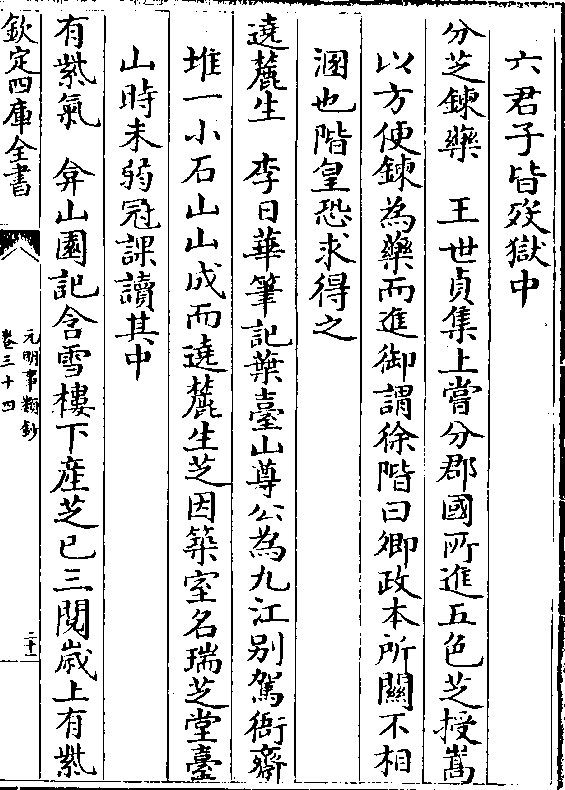 六君子皆歿獄中
分芝鍊藥　王世貞集上嘗分郡國所進五色芝授嵩
以方使鍊為藥而進御謂徐階曰卿政本所關不相
溷也階皇恐求得之
遶麓生　李日華筆記葉臺山尊公為九江别駕衙齋
堆一小石山山成而遶麓生芝因築室名瑞芝堂臺
山時未弱冠課讀其中
有紫氣　弇山園記含雪樓下産芝已三閱歳上有紫
欽定四庫全書
元明事類鈔
卷三十四
二十一